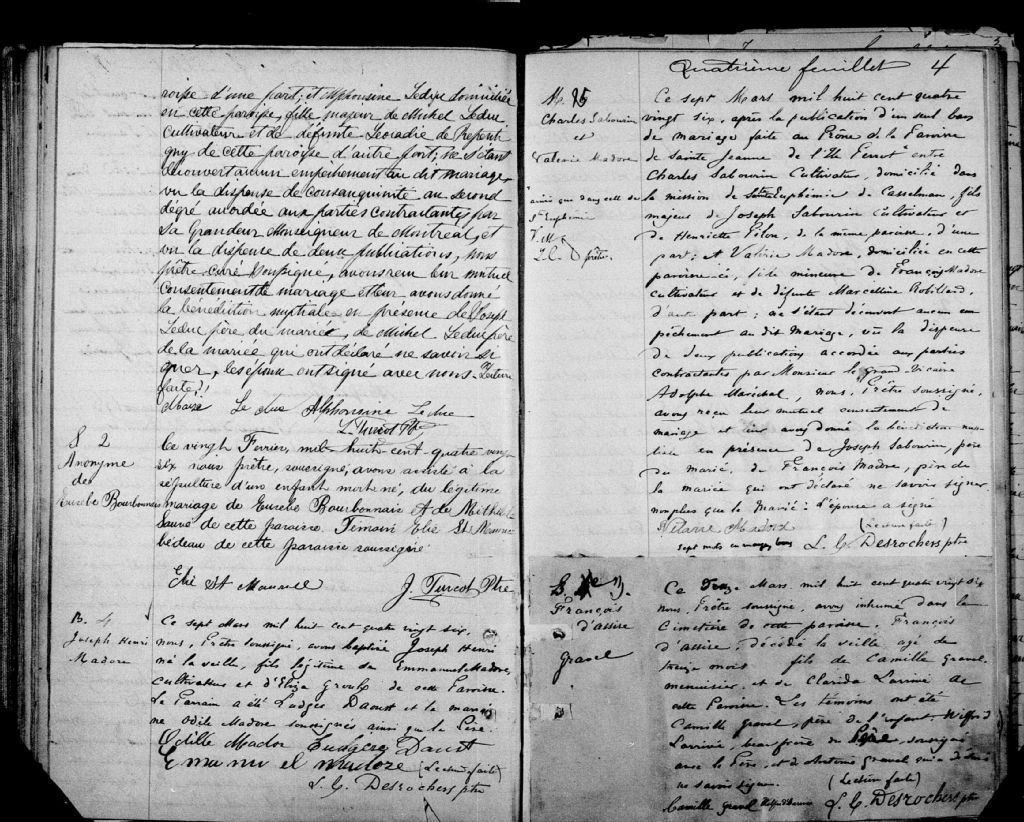 roisse d'une part; et Alphonsine Leduc domiciliée
en cette paroisse, fille majeur de Michel Leduc
cultivateur et de défunte Léocadie de Repenti
gny de cette paroisse d'autre part; ne s'étant
découvert aucun empêchement au dit mariage,
vu la dispense de consanguinité au second
dégré accordée aux parties contractantes par
Sa Grandeur Monseigneur de Montréal, et
vu la dispense de deux publications, nous
prêtre, curé soussigné, avons reçu leur mutuel
consentement de mariage et leur avons donné
la bénédiction nuptiale en présence de Joseph
Leduc père du marié, de Michel Leduc père
de la mariée qui ont déclaré ne savoir si
gner, les époux ont signé avec nous. Lecture
faite
Moïse Le duc Alphonsine Leduc
L. Turcot Ptre
S 2
Anonyme
de
Eusèbe Bourbonnais
Ce vingt Février, mil huit cent quatre vingt
six nous prêtre, soussigné, avons assisté à la
sépulture d'un enfant mort né, du légitime
mariage de Eusèbe Bourbonnais et de
Sauvé de cette paroisse. Témoin Elie St Maurice
bedeau de cette paroisse soussigné
Elie St Maurice J. Turcot Ptre
B. 4
Joseph Henri
Madore
Ce sept Mars mil huit cent quatre vingt six,
nous, Prêtre soussigné, avons baptisé Joseph Henri
né la veille, fils légitime de Emmanuel Madore,
cultivateur et d'Eliza Groulx de cette Paroisse.
Le Parrain a été Ludger Daoust et la marrai
ne Odile Madore soussignés ainsi que le Père.
Odille Mador Ludger Daoust
Emanuel madore (Lecture faite)
L. G. Desrochers ptre
Quatrième feuillet 4
M. 5
Charles Sabourin
et
Valérie Madore
ainsi que dans celle de
Ste Euphémie
ptre
Ce sept Mars mil huit cent quatre
vingt six, après la publication d'un seul bans
de mariage faite au Prône de la Paroisse
de Sainte Jeanne de l'Ile Perrot entre
Charles Sabourin Cultivateur, domicilié dans
la mission de Sainte Euphémie de Casselman, fils
majeur de Joseph Sabourin Cultivateur et
de Henriette Pilon, de la même paroisse, d'une
part; et Valérie Madore, domiciliée en cette
paroisse-ci, fille mineure de François Madore
cultivateur et de défunte Marcelline Robillard,
d'autre part; ne s'étant découvert aucun em
pêchement au dit Mariage, vu la dispense
de deux publications accordée aux parties
contractantes par Monsieur le grand Vicaire
Adolphe Maréchal, nous, Prêtre soussigné,
avons reçu leur mutuel consentement de
mariage et leur avons donné la bénédiction nup
tiale en présence de Joseph Sabourin, père
du marié, de François Madore, père de
la mariée qui ont déclaré ne savoir signer
non plus que le Marié: L'épouse a signé
Madore (Lecture faite)
sept mots en marge bons L. G. Desrochers ptre
S. 3.
François
d'assise
Gravel
Ce Mars mil huit cent quatre vingt six
nous, Prêtre soussigné, avons inhumé dans le
Cimetière de cette paroisse, François
d'assise, décédé la veille agé de
mois fils de Camille Gravel,
menuisier, et de Clarida Larrivé de
cette Paroisse. Les témoins ont été
Camille gravel, père de l'enfant, Wilfrid
Larrivé, beaufrère du Père, soussigné
avec le Père, et d'Antoine Gravel qui a déclaré
ne savoir signer. (Lecture faite)
Camille gravel Wilfrid Larrivé L. G. Desrochers ptre